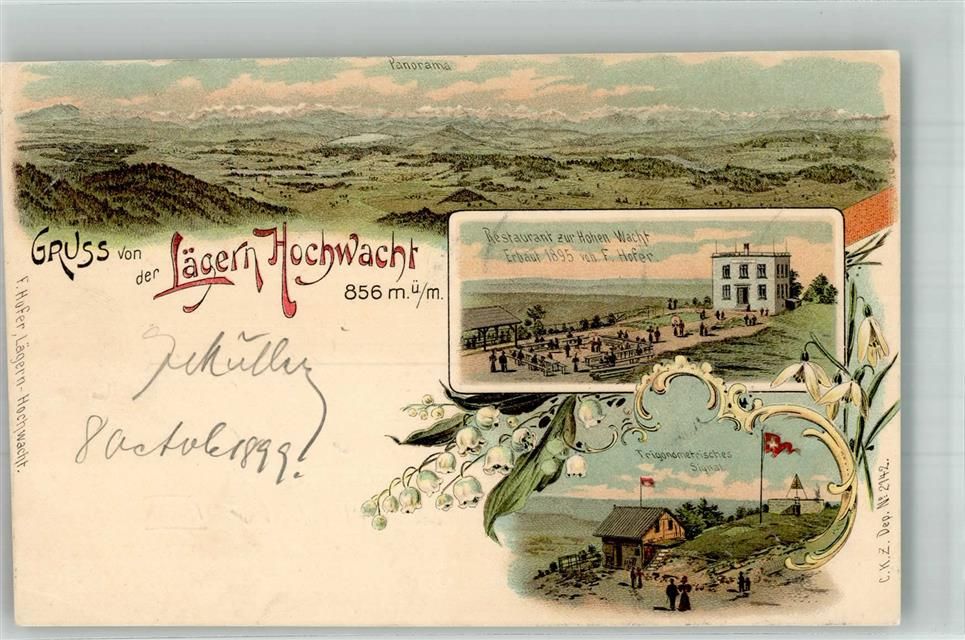 Panorama
GRUSS von
der Lägern Hochwacht
856 m. ü/m.
Restaurant zur Hohen Wacht
Erbaut 1895 von F. Hofer
8 octob 1899.
Trigonometrisches
Signal
F. Hofer, Lägern-Hochwacht.
C.K.Z. Dep. № 2142.